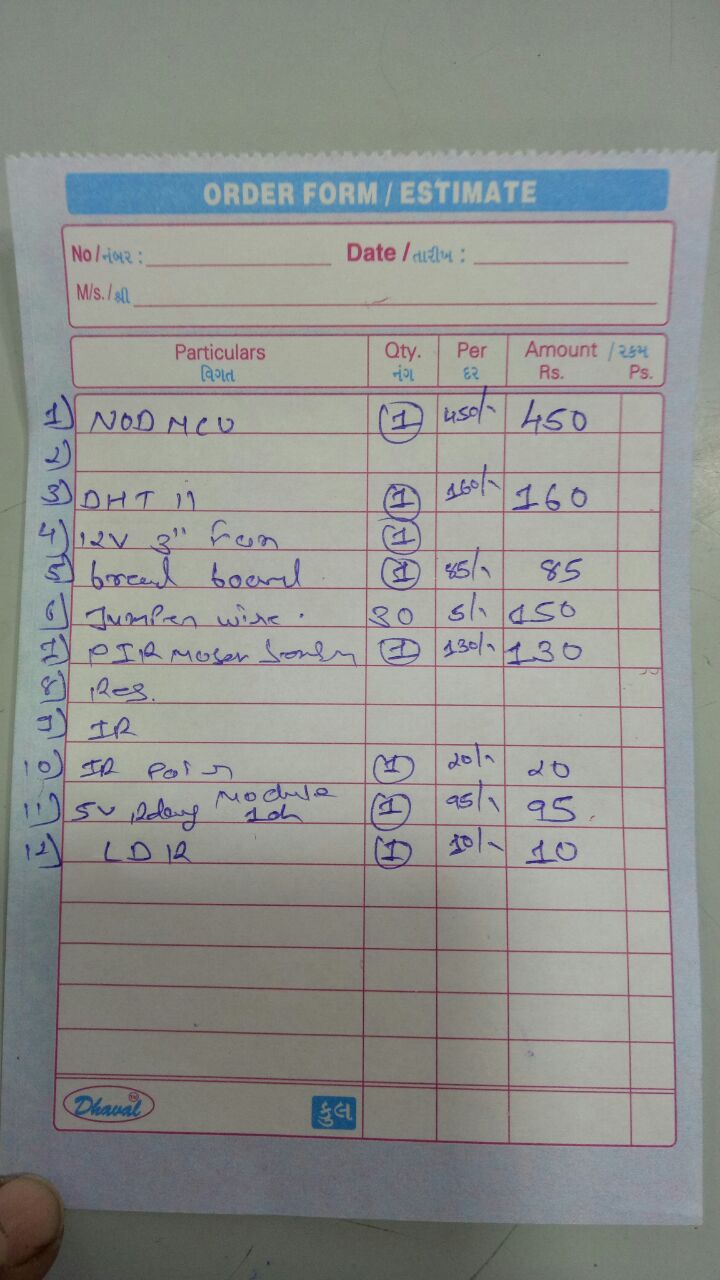 ORDER FORM / ESTIMATE
No / નંબર : Date / તારીખ :
M/s. / શ્રી
Particulars Qty. Per Amount / રકમ
વિગત નંગ દર Rs. Ps.
1) NOD MCU 1 450/- 450
2)
3) DHT 11 1 160/- 160
4) 12V 3" Fan 1
5) bread board 1 85/- 85
6) Jumper wire. 30 5/- 150
7) PIR 1 130/- 130
8) Res.
9) IR
10) IR Pair 1 20/- 20
11) 5V Relay Module 1ch 1 95/- 95
12) LDR 1 10/- 10
Dhaval TM કુલ